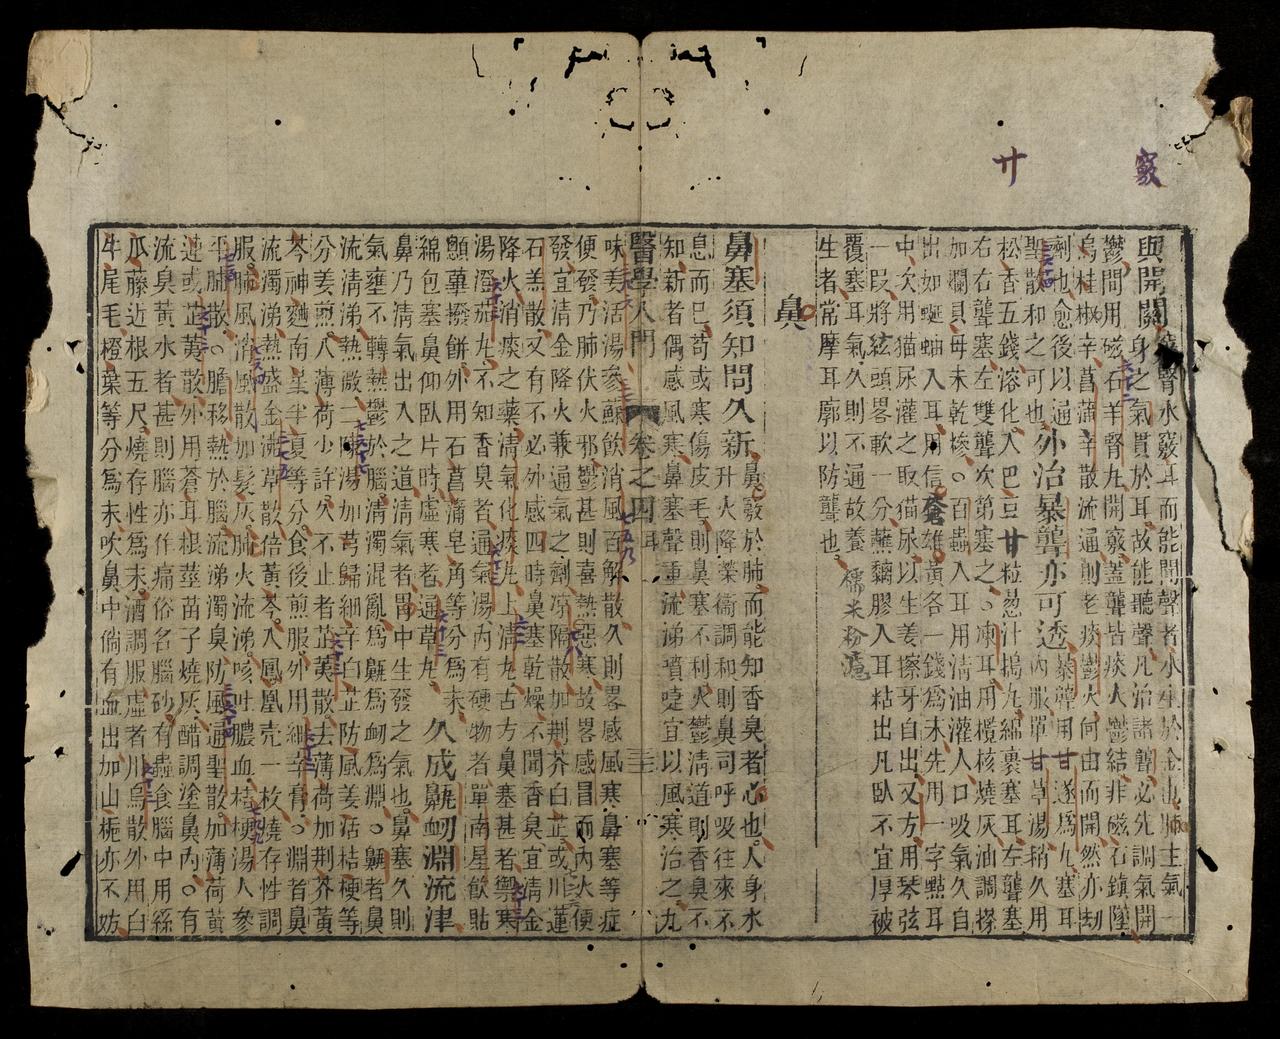 竅
廿
與開關
腎水竅耳而能聞聲者水生於金也肺主氣一
身之氣貫於耳故能聽聲凡治諸聾必先調氣開
鬱間用磁石羊腎丸開竅蓋聾皆痰火鬱結非磁石鎮墜
烏桂椒辛菖蒲辛散流通則老痰鬱火何由而開然亦劫
劑也愈後以通
聖散和之可也
外治暴聾亦可透
暴聾用甘遂為丸塞耳
內服單甘草湯稍久用
松香五錢溶化入巴豆廿粒葱汁搗丸綿裹塞耳左聾塞
右右聾塞左雙聾次第塞之○凍耳用欖核燒灰油調搽
加爛貝母末乾摻○百蟲入耳用清油灌入口吸氣久自
出如蜒蚰入耳用信倉雄黃各一錢為末先用一字點耳
中次用猫尿灌之取猫尿以生姜擦牙自出又方用琴弦
一段將絃頭畧軟一分蘸黐膠入耳粘出凡臥不宜厚被
覆塞耳氣久則不通故養
生者常摩耳廓以防聾也
糯米粉
鼻
鼻塞須知問久新
鼻竅於肺而能知香臭者心也人身水
升火降榮衞調和則鼻司呼吸往來不
息而已苟或寒傷皮毛則鼻塞不利火鬱清道則香臭不
知新者偶感風寒鼻塞聲重流涕噴嚏宜以風寒治之九
醫學入門
卷之四
耳
三三
味羌活湯參蘇飲消風百解散久則畧感風寒鼻塞等症
便發乃肺伏火邪鬱甚則喜熱惡寒故畧感冒而內火便
發宜清金降火兼通氣之劑凉隔散加荆芥白芷或川蓮
石羔散又有不必外感四時鼻塞乾燥不聞香臭宜清金
降火消痰之藥清氣化痰丸上清丸古方鼻塞甚者禦寒
湯澄茄丸不知香臭者通氣湯內有硬物者單南星飲貼
顖蓽撥餅外用石菖蒲皂角等分為末
綿包塞鼻仰臥片時虛寒者通草丸
久成鼽衂淵流津
鼻乃清氣出入之道清氣者胃中生發之氣也鼻塞久則
氣壅不轉熱鬱於腦清濁混亂為鼽為衂為淵○鼽者鼻
流清涕熱微二陳湯加芎歸細辛白芷防風羌活桔梗等
分姜煎入薄荷少許久不止者芷荑散去薄荷加荆芥黃
芩神麯南星半夏等分食後煎服外用細辛膏○淵者鼻
流濁涕熱盛金沸草散倍黃芩入鳳凰壳一枚燒存性調
服肺風消風散加髮灰肺火流涕咳吐膿血桔梗湯人參
平肺散○膽移熱於腦流涕濁臭防風通聖散加薄荷黃
連或芷荑散外用蒼耳根莖苗子燒灰醋調塗鼻內○有
流臭黃水者甚則腦亦作痛俗名腦砂有蟲食腦中用絲
瓜藤近根五尺燒存性為末酒調服虛者川烏散外用白
牛尾毛橙葉等分為末吹鼻中倘有血出加山梔亦不妨